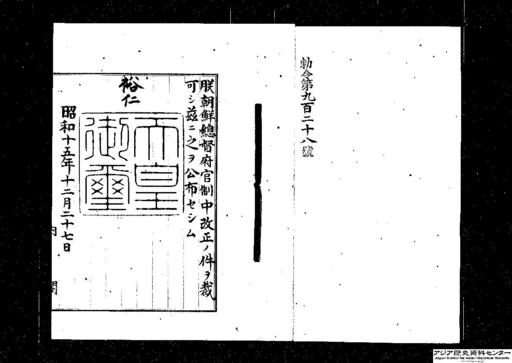 勅令第九百二十八號
朕朝鮮總督府官制中改正ノ件ヲ裁
可シ茲ニ之ヲ公布セシム
裕仁
天皇
御璽
昭和十五年十二月二十七日
内閣
アジア歴史資料センター
Japan Center for Asian Historical Records